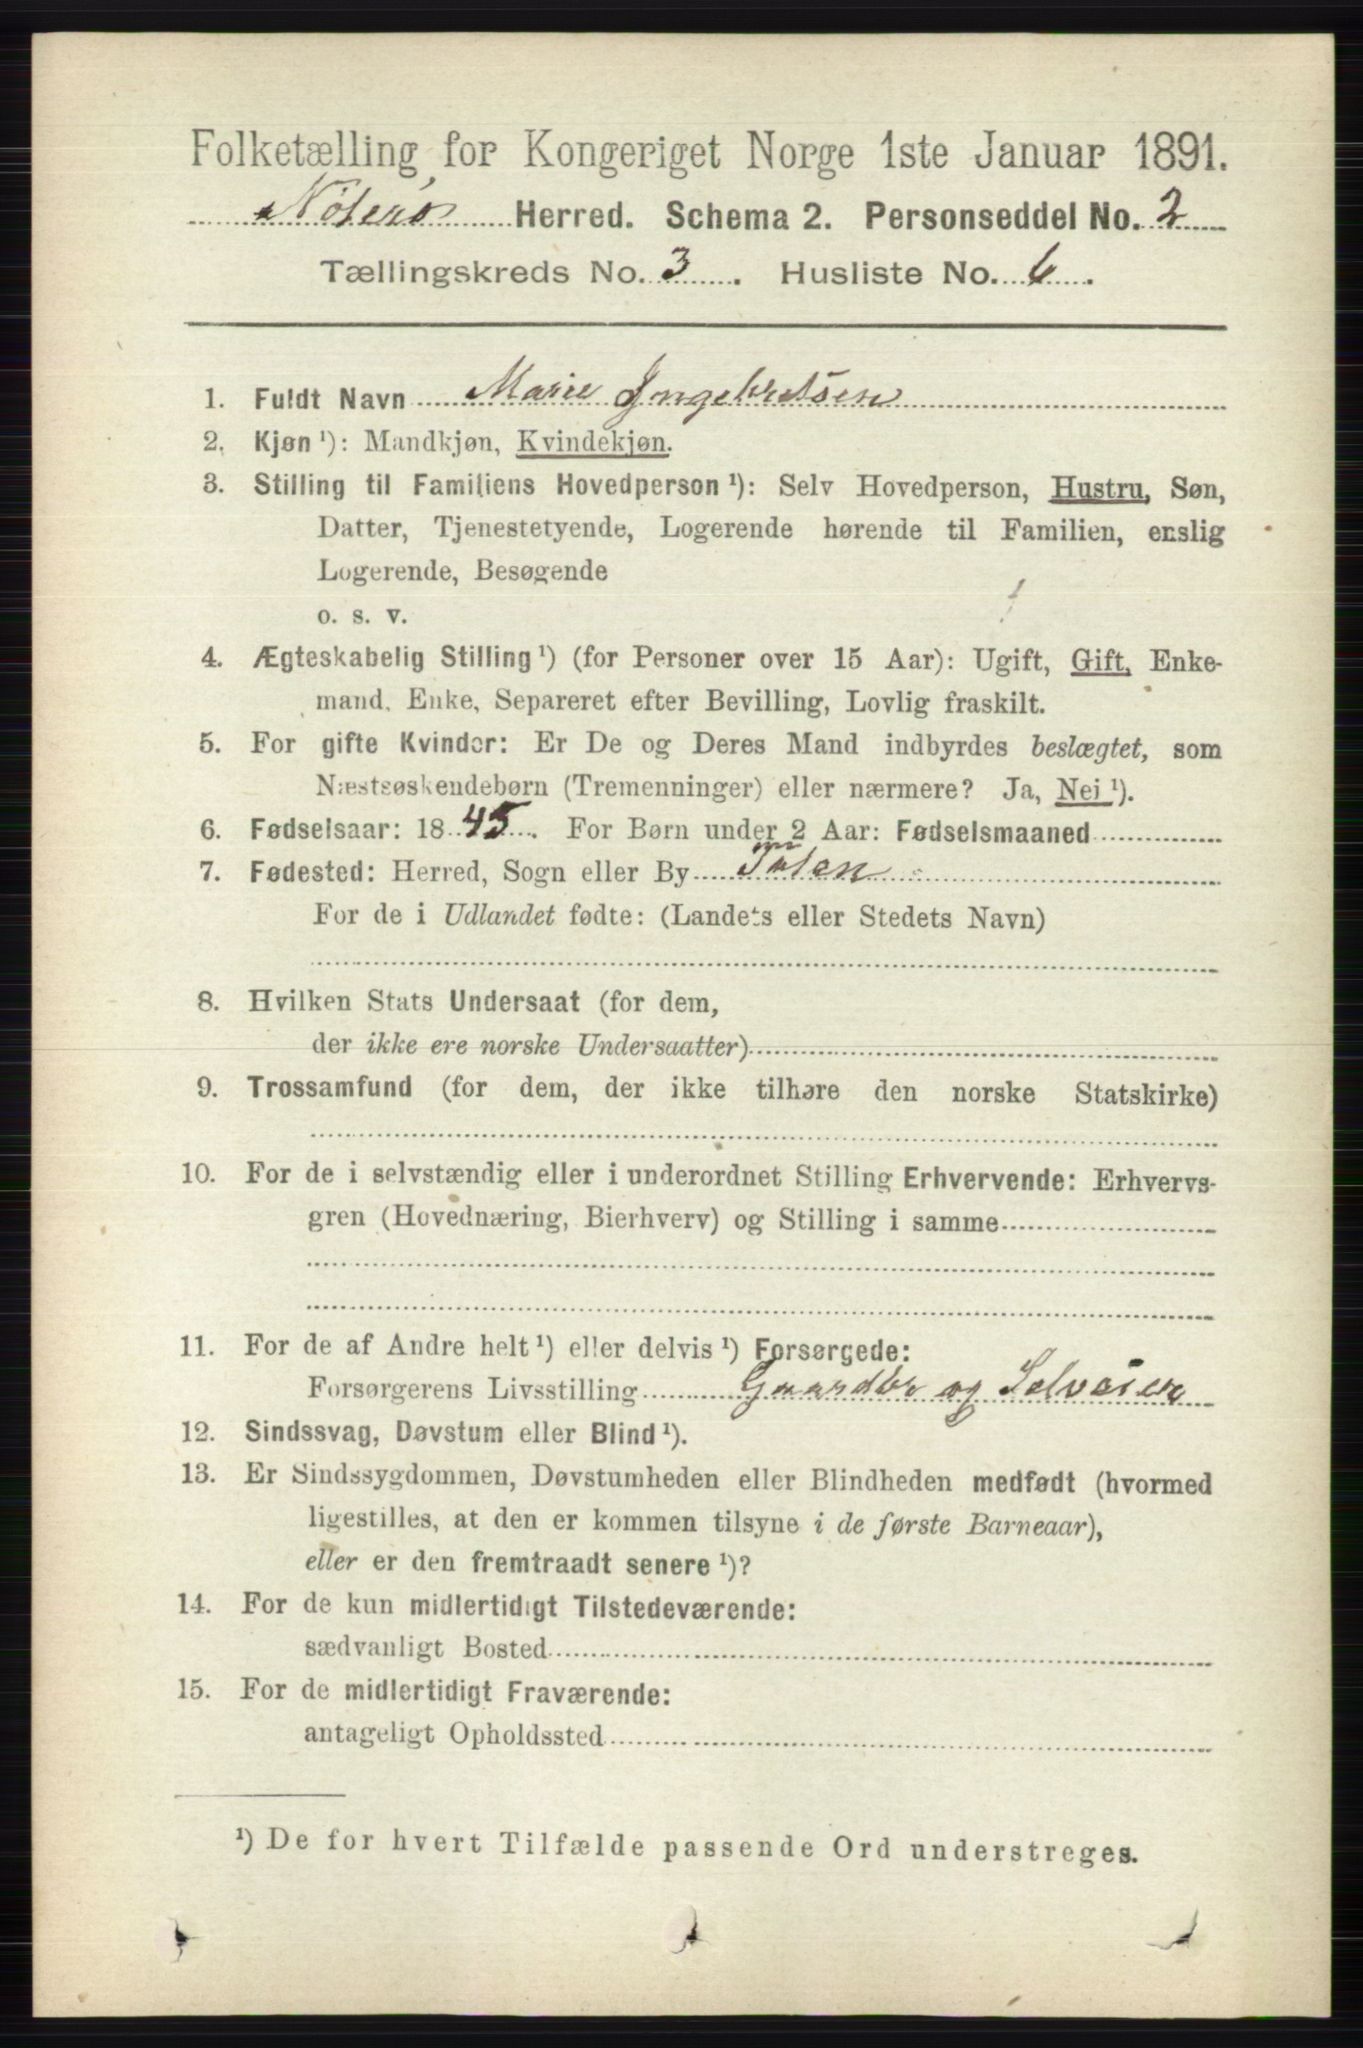 Folketælling for Kongeriget Norge 1ste Januar 1891.
Nøterø Herred. Schema 2. Personseddel No. 2
Tællingskreds No. 3. Husliste No. 6.
1. Fuldt Navn Marie Ingebretsen
2. Kjøn ¹): Mandkjøn, Kvindekjøn.
3. Stilling til Familiens Hovedperson ¹): Selv Hovedperson, Hustru, Søn,
Datter, Tjenestetyende, Logerende hørende til Familien, enslig
Logerende, Besøgende
o. s. v.
4. Ægteskabelig Stilling ¹) (for Personer over 15 Aar): Ugift, Gift, Enke-
mand, Enke, Separeret efter Bevilling, Lovlig fraskilt.
5. For gifte Kvinder: Er De og Deres Mand indbyrdes beslægtet, som
Næstsøskendebørn (Tremenninger) eller nærmere? Ja, Nei ¹).
6. Fødselsaar: 1845. For Børn under 2 Aar: Fødselsmaaned
7. Fødested: Herred, Sogn eller By
For de i Udlandet fødte: (Landets eller Stedets Navn)
8. Hvilken Stats Undersaat (for dem,
der ikke ere norske Undersaatter)
9. Trossamfund (for dem, der ikke tilhøre den norske Statskirke)
10. For de i selvstændig eller i underordnet Stilling Erhvervende: Erhvervs-
gren (Hovednæring, Bierhverv) og Stilling i samme
11. For de af Andre helt ¹) eller delvis ¹) Forsørgede:
Forsørgerens Livsstilling Gaardbr og Selveier
12. Sindssvag, Døvstum eller Blind ¹).
13. Er Sindssygdommen, Døvstumheden eller Blindheden medfødt (hvormed
ligestilles, at den er kommen tilsyne i de første Barneaar),
eller er den fremtraadt senere ¹)?
14. For de kun midlertidigt Tilstedeværende:
sædvanligt Bosted
15. For de midlertidigt Fraværende:
antageligt Opholdssted
¹) De for hvert Tilfælde passende Ord understreges.